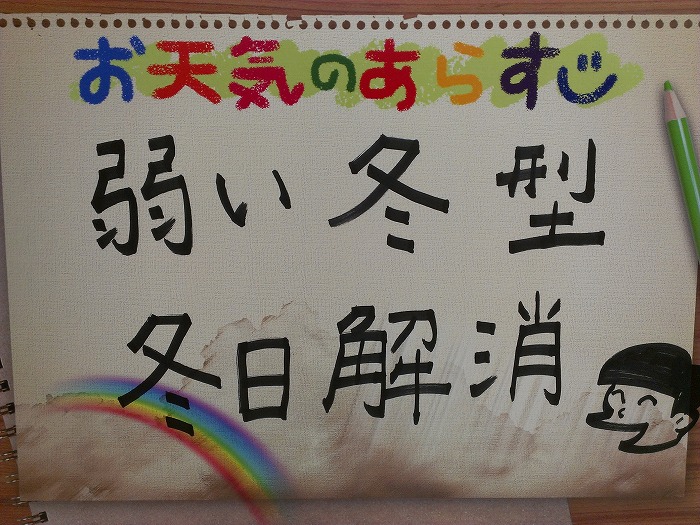 お天気のあらすじ
弱い冬型
冬日解消